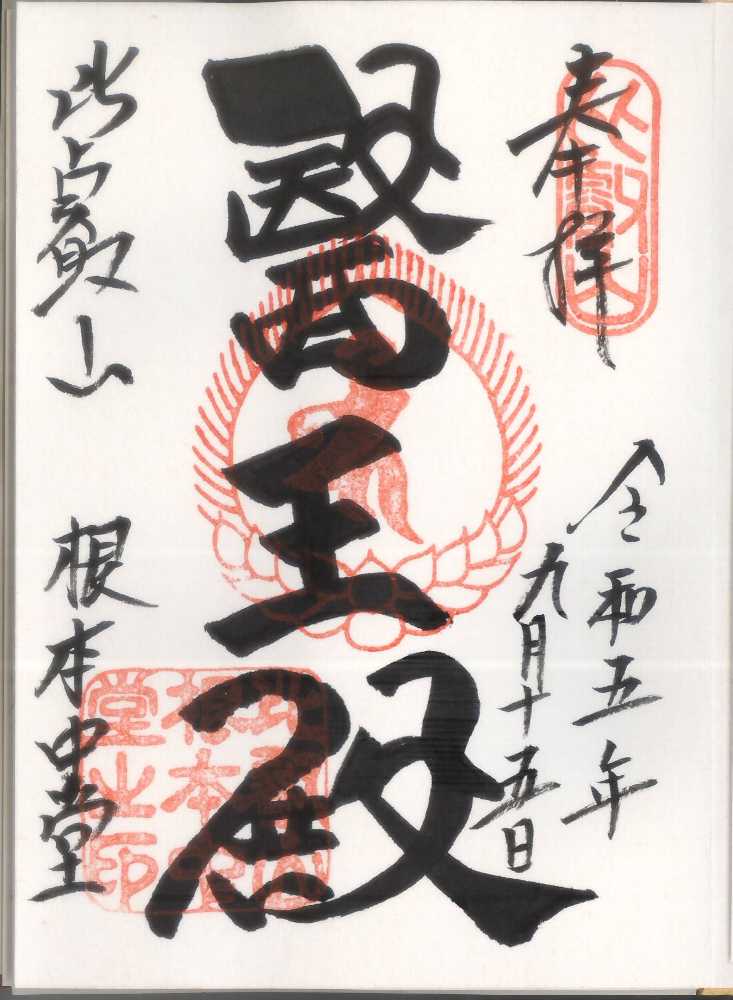 奉拝
令和五年
九月十五日
醫王殿
比叡山 根本中堂
比叡山
比叡山
根本中
堂之印